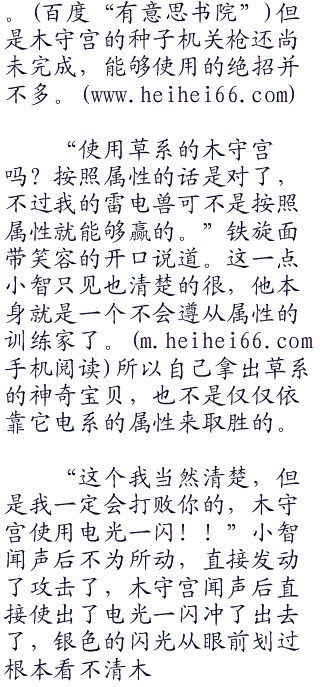 。(百度“有意思书院”)但
是木守宫的种子机关枪还尚
未完成，能够使用的绝招并
不多。(www.heihei66.com)
“使用草系的木守宫
吗？按照属性的话是对了，
不过我的雷电兽可不是按照
属性就能够赢的。”铁旋面
带笑容的开口说道。这一点
小智只见也清楚的很，他本
身就是一个不会遵从属性的
训练家了。(m.heihei66.com
手机阅读)所以自己拿出草系
的神奇宝贝，也不是仅仅依
靠它电系的属性来取胜的。
“这个我当然清楚，但
是我一定会打败你的，木守
宫使用电光一闪！！”小智
闻声后不为所动，直接发动
了攻击了，木守宫闻声后直
接使出了电光一闪冲了出去
了，银色的闪光从眼前划过
根本看不清木